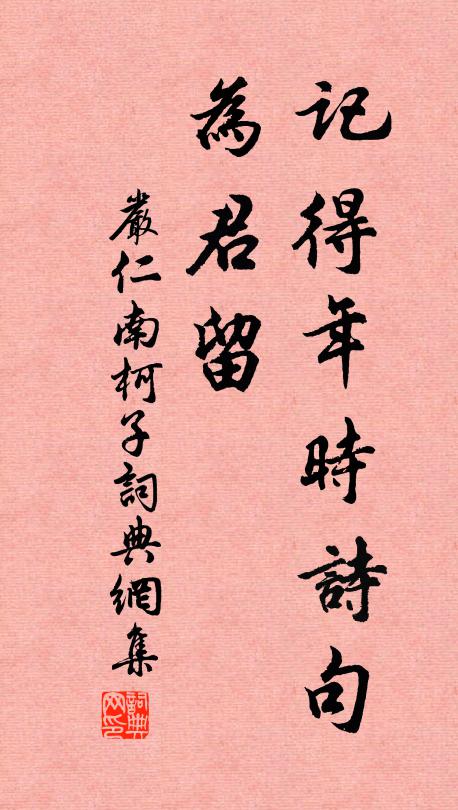 記得年時詩句
為君留
嚴仁南柯子詞典網集
詞典網印